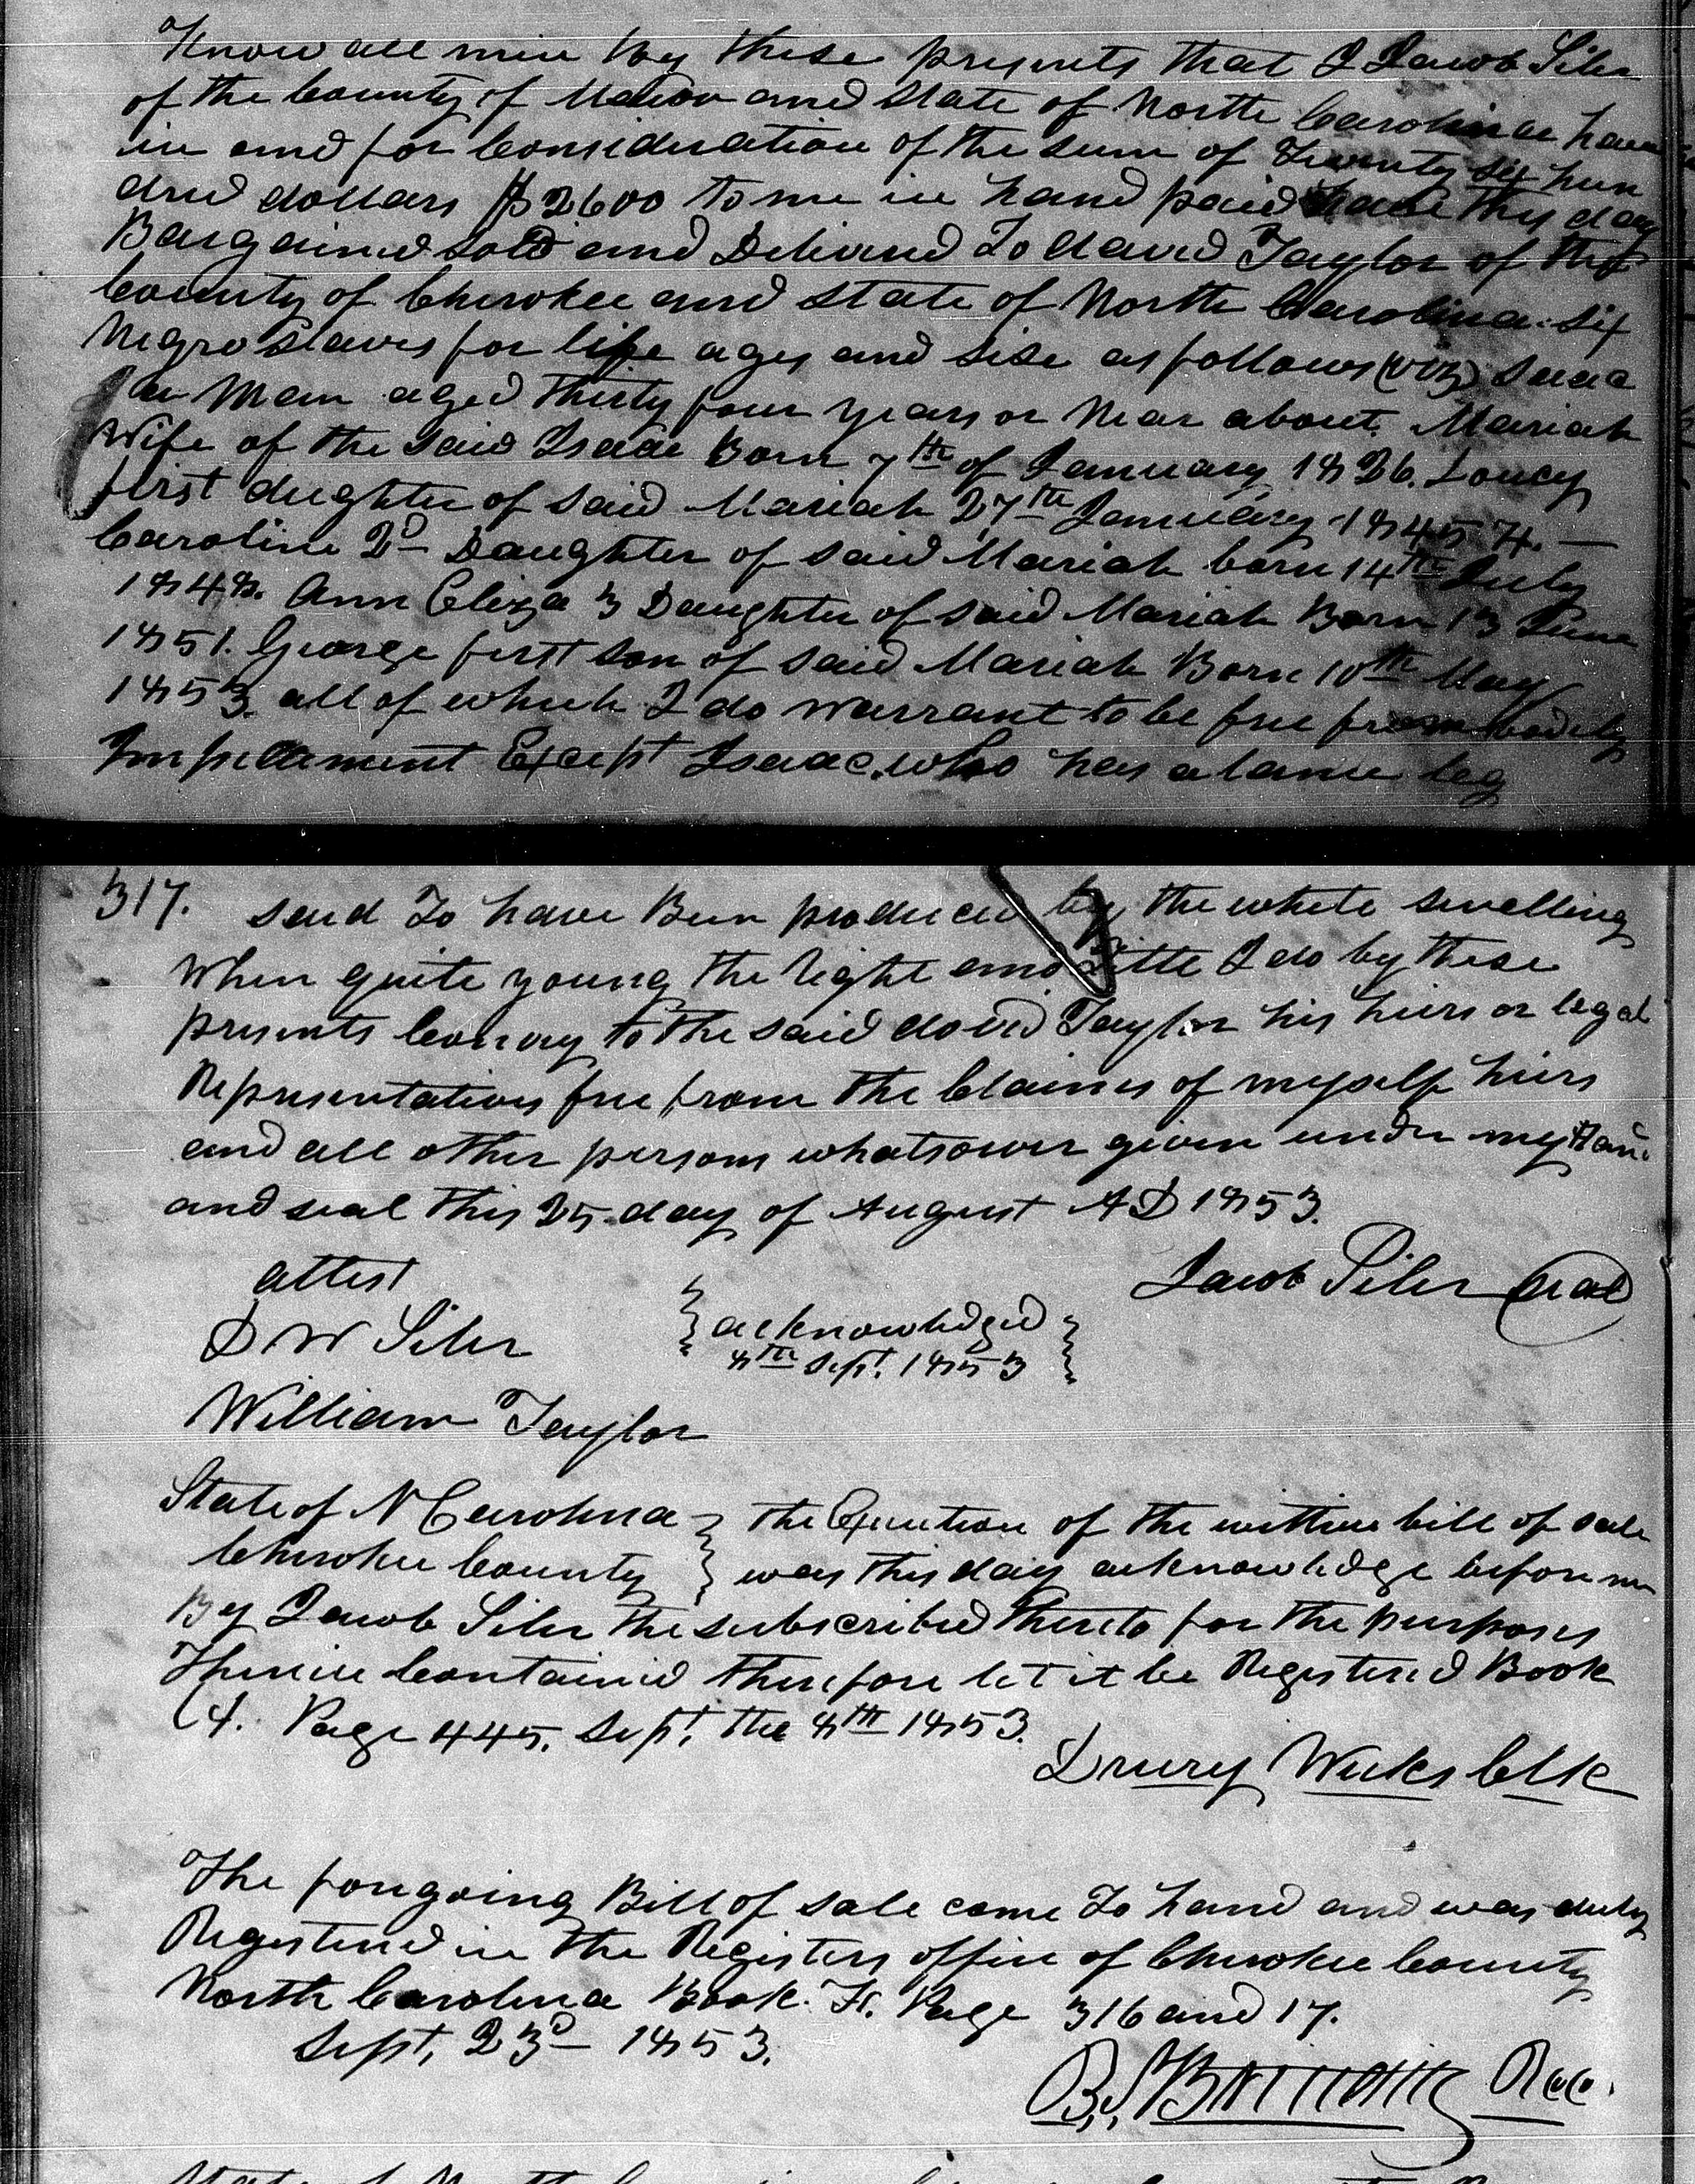 Know all men by these presents that I Jacob Siler
of the County of Macon and State of North Carolina have
in and for Consideration of the sum of Twenty six hun
dred dollars $2600 to me in hand paid have this day
Bargained sold and Delivered To david Taylor of the
County of Cherokee and State of North Carolina. six
Negro slaves for life ages and sise as follows (viz) Isaac
a Man aged thirty four years or Near about. Mariah
Wife of the said Isaac Born 7th of January 1826. Loucy
first dughter of said Mariah 27th January 1845
Caroline 2d Daughter of said Mariah born 14th July
1848. Ann Eliza 3 Daughter of said Mariah Born 13 June
1851. George first son of said Mariah Born 10th May
1853. all of which I do warrant to be free from bodily
Impediment Except Isaac, who has a lame leg
317. said To have Been produced by the white swelling
When quite young the right and Title I do by these
presents Convey to the said david Taylor his hiers or legal
Representatives free from the Claimes of myself hiers
and all other persons whatsower given under my Han
and seal this 25 day of August AD 1853.
attest
Jacob Siler seal
D W Siler
acknowledged
8th Sept. 1853
William Taylor
State of N Carolina the Execution of the within bill of sale
Cherokee County was this day acknowledge before me
By Jacob Siler the subscribed thereto for the purposes
Therein Contained therefore let it be Registered Book
Page 445. Sept. the 8th 1853.
Drury Weeks Clk
The forgoing Bill of sale came To hand and was duly
Registered in the Registers office of Cherokee County
North Carolina Book. Page 316 and 17.
Sept, 23d 1853.